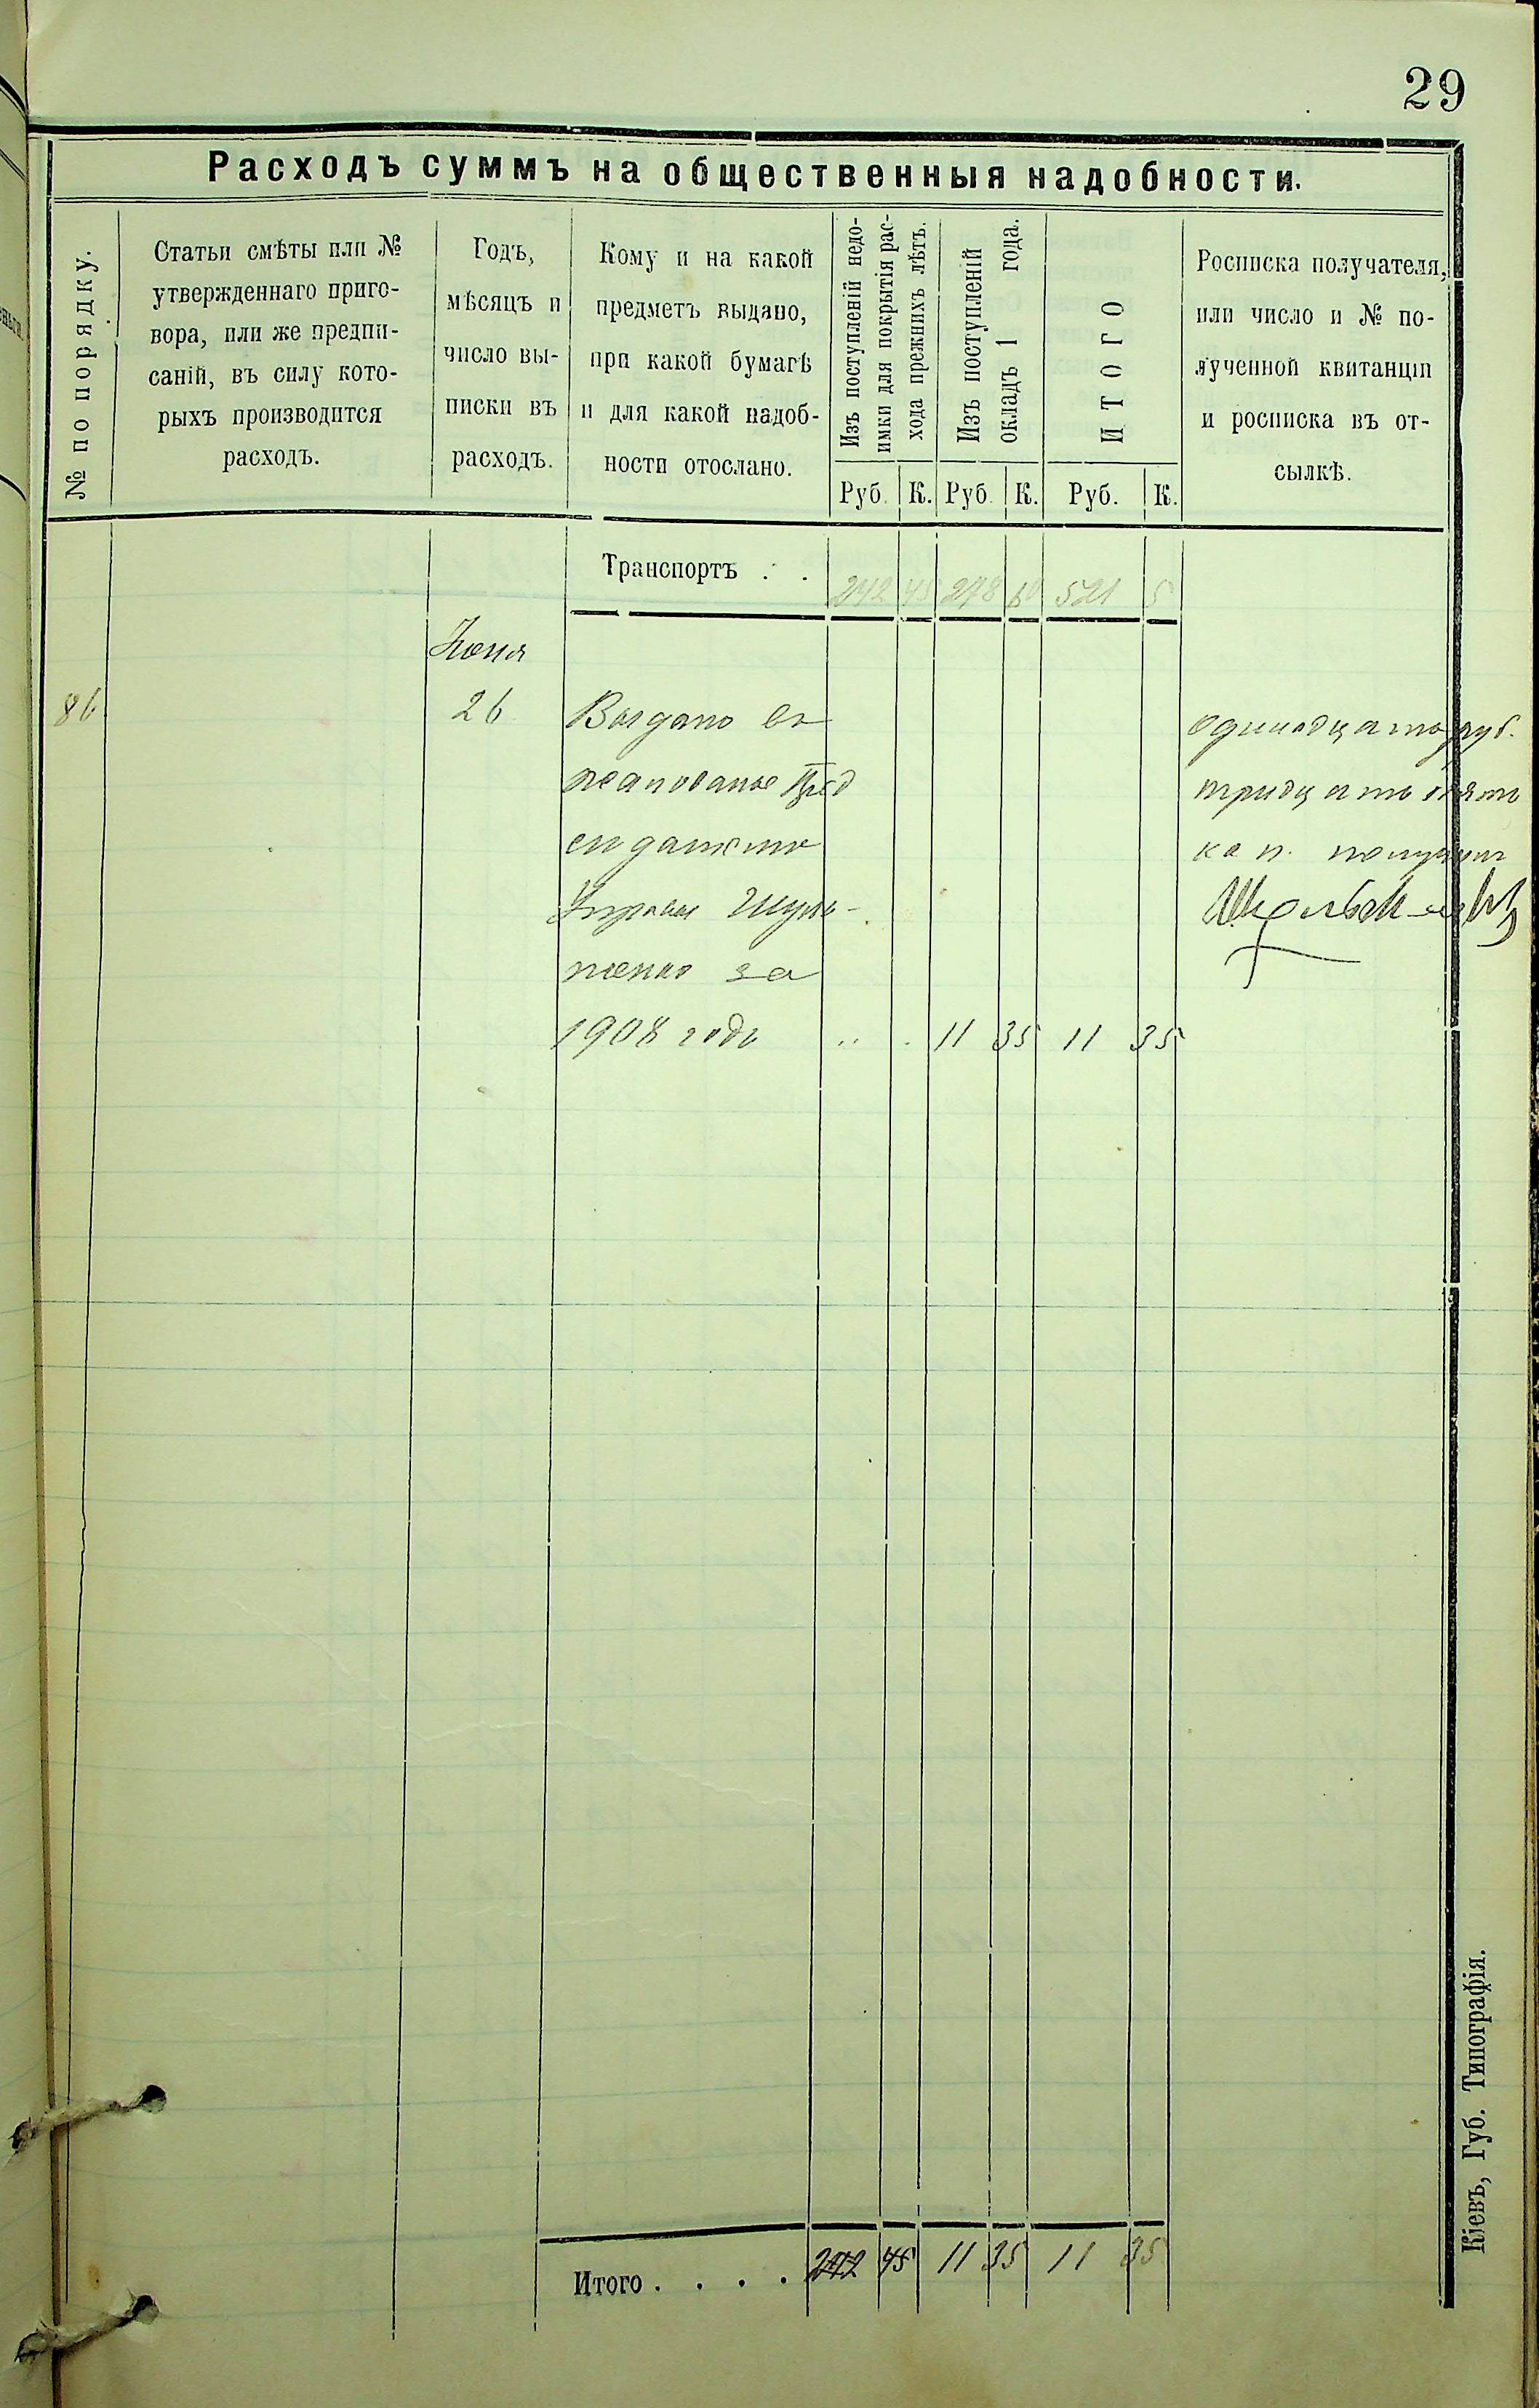 29
Расходъ суммъ на общественныя надобности.
№ по порядку.
Статьи смѣты или №
утвержденнаго приго-
вора, или же предпи-
саній, въ силу кото-
рыхъ производится
расходъ.
Годъ,
мѣсяцъ и
число вы-
писки въ
расходъ.
Кому и на какой
предметъ выдано,
при какой бумагѣ
и для какой надоб-
ности отослано.
Изъ поступленій недо-
имки для покрытія рас-
хода прежнихъ лѣтъ.
Изъ поступленій
окладъ 1 года.
ИТОГО
Руб. К. Руб. К. Руб. К.
Росписка получателя,
или число и № по-
лученной квитанціи
и росписка въ от-
сылкѣ.
Транспортъ . . 242 45 278 60 521 5
Іюня
86 26 Выдано въ
жалованье Пред
сѣдателю
Управы Шуль-
женко за
1908 годъ 11 35 11 35
одинадцать руб.
тридцать пять
коп. получилъ
Итого . . . . 242 45 11 35 11 35
Кіевъ, Губ. Типографія.